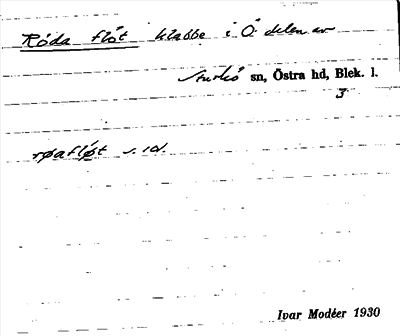 Röda flöt klabbe i Ö delen av
Sturkö sn, Östra hd, Blek. l.
3
røafløt s. id.
Ivar Modéer 1930